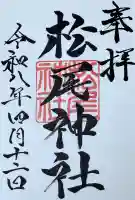 奉拝
松尾神社
令和八年四月十二日